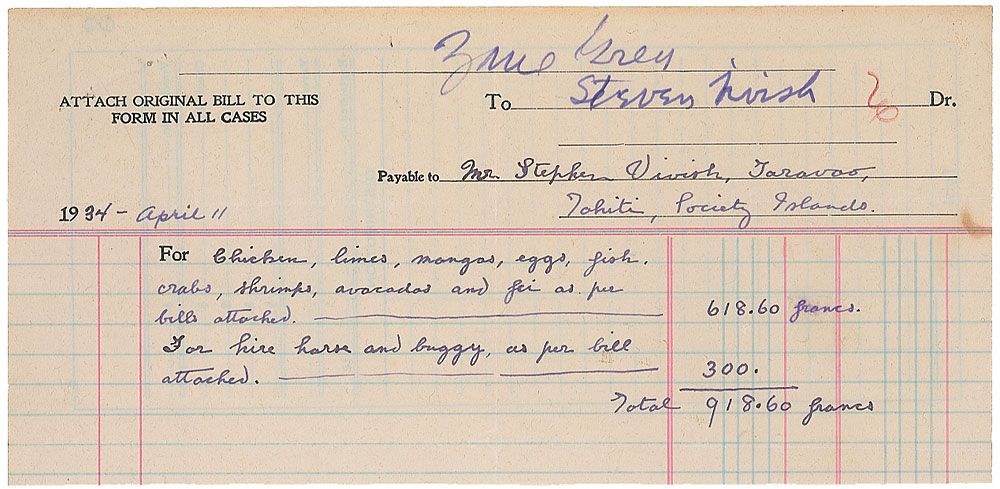 Zane Grey
ATTACH ORIGINAL BILL TO THIS
FORM IN ALL CASES
To Steven Dr.
26
Payable to Mr. Stephen Vivish, Taravao,
Tahiti, Society Islands.
1934 - April 11
For Chicken, limes, mangos, eggs, fish.
crabs, shrimps, avocados and fei as per
bills attached. 618.60 francs.
For hire horse and buggy, as per bill
attached. 300.
Total 918.60 francs